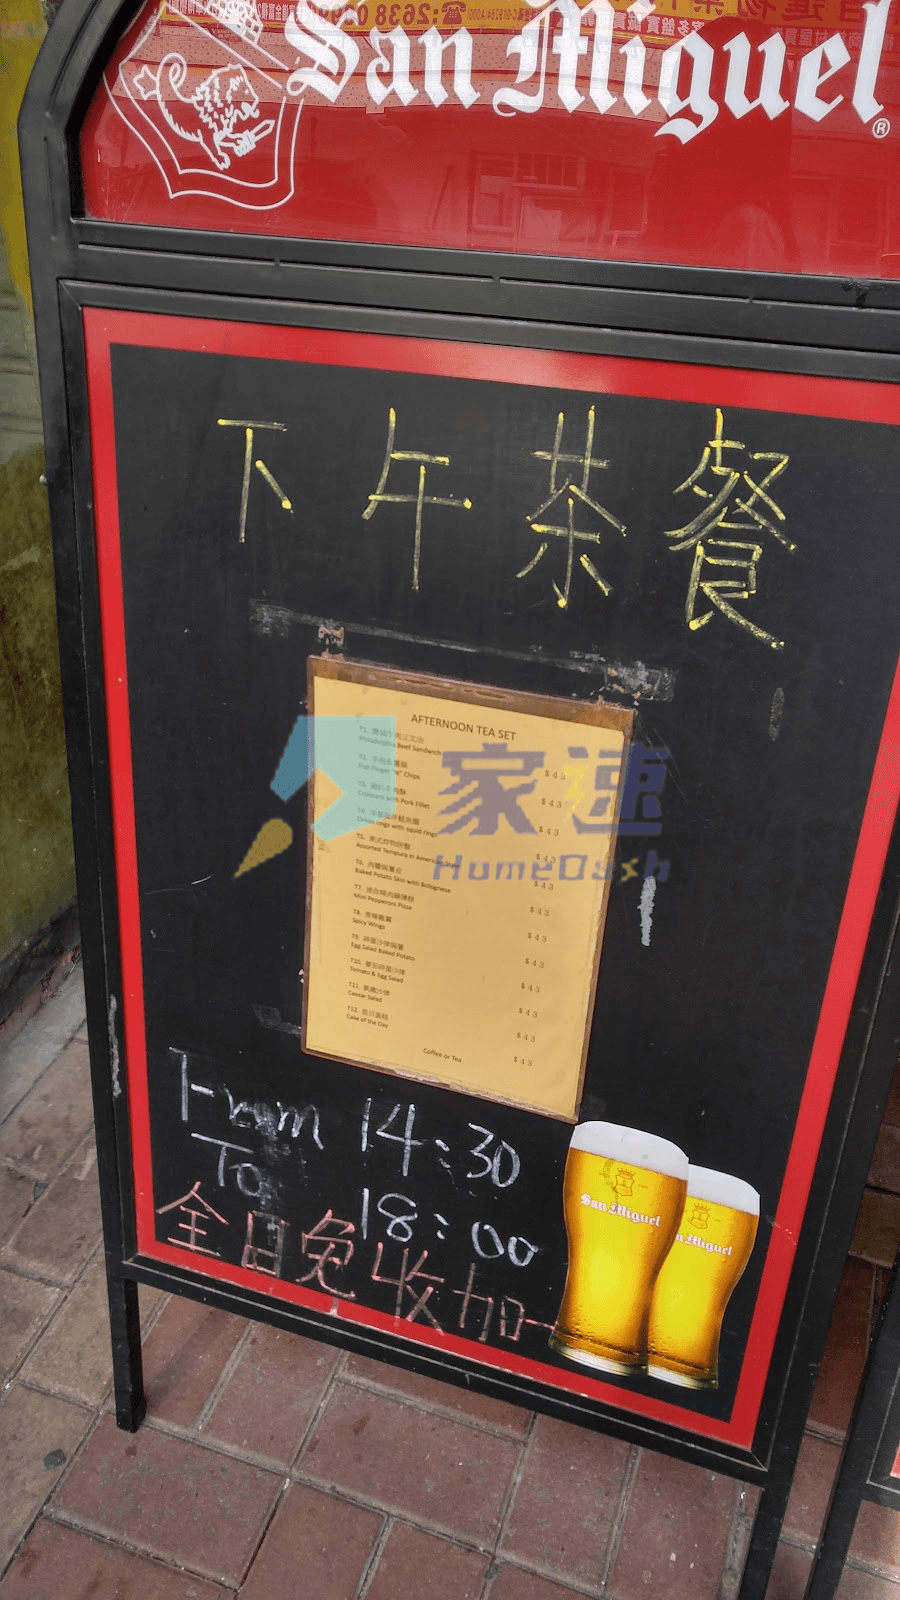 San Miguel®
下午茶餐
AFTERNOON TEA SET
T1.
Philadelphia Beef Sandwich
T2.
Fish Finger "N" Chips $43
T3.
Croissant with Pork Fillet $43
T4.
Onion rings with squid rings $43
T5. 美式炸物拼盤
Assorted Tempura in American Style $43
T6. 肉醬焗薯皮
Baked Potato Skin with Bolognese $43
T7. 迷你辣肉腸薄餅
Mini Pepperoni Pizza $43
T8. 香辣雞翼
Spicy Wings $43
T9. 碎蛋沙律焗薯
Egg Salad Baked Potato $43
T10. 蕃茄碎蛋沙律
Tomato & Egg Salad $43
T11. 凱撒沙律
Caesar Salad $43
T12. 是日蛋糕
Cake of the Day $43
Coffee or Tea
家速
HomeDash
From 14:30
To 18:00
全日免收加一
San Miguel
San Miguel